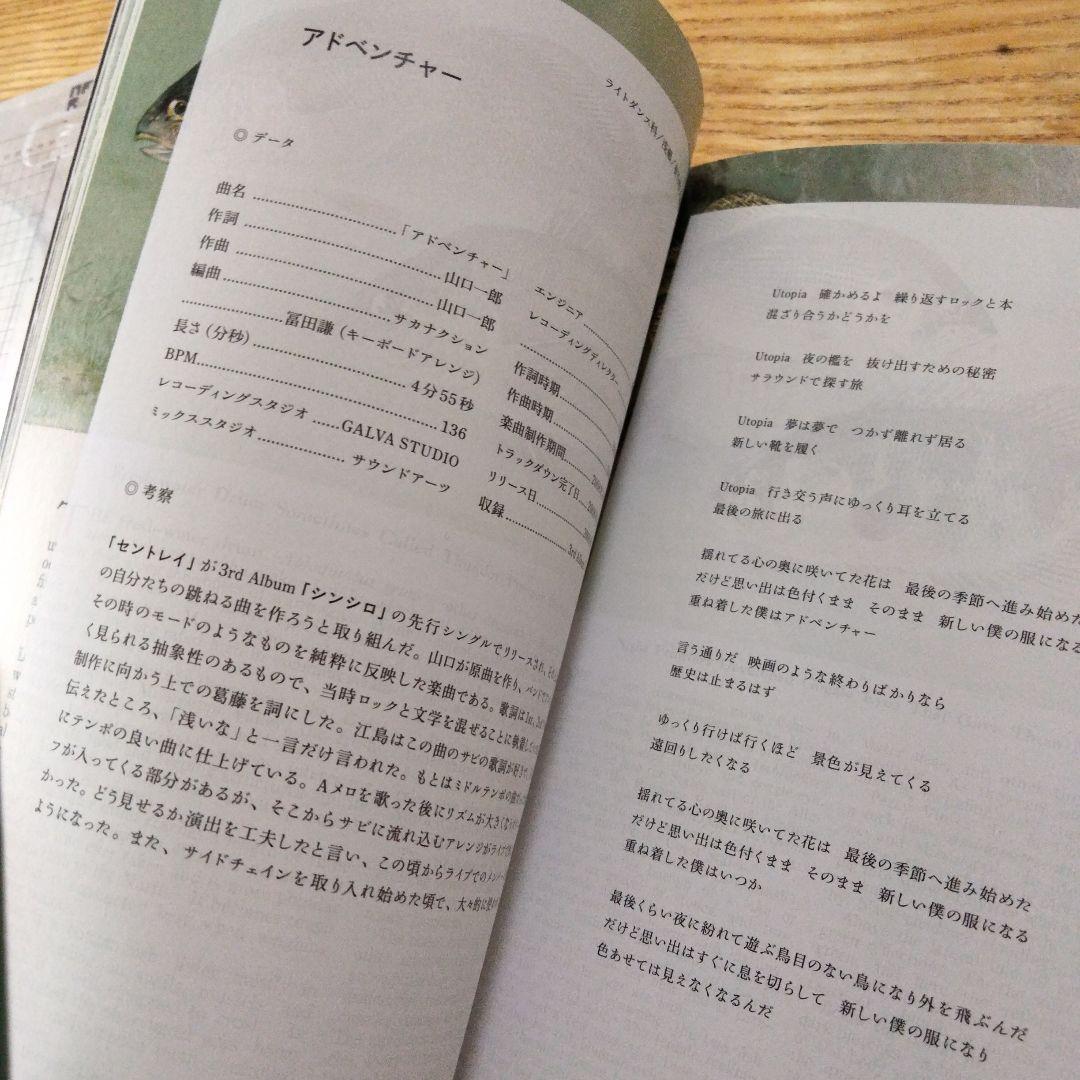 アドベンチャー
ライトダンス科/
◎ データ
曲名 ……「アドベンチャー」
作詞 …… 山口一郎
作曲 …… 山口一郎
編曲 …… サカナクション
…… 冨田謙 (キーボードアレンジ)
長さ (分秒) …… 4分55秒
BPM …… 136
レコーディングスタジオ …… GALVA STUDIO
ミックススタジオ …… サウンドアーツ
エンジニア ……
レコーディングディレクター ……
作詞時期 ……
作曲時期 ……
楽曲制作期間 ……
トラックダウン完了日 ……
リリース日 ……
収録 …… 3rd
◎ 考察
「セントレイ」が3rd Album「シンシロ」の先行シングルでリリースされ、
の自分たちの跳ねる曲を作ろうと取り組んだ。山口が原曲を作り、バンドで
その時のモードのようなものを純粋に反映した楽曲である。歌詞は1st、
く見られる抽象性のあるもので、当時ロックと文学を混ぜることに執着し
制作に向かう上での葛藤を詞にした。江島はこの曲のサビの歌詞が好きで、
伝えたところ、「浅いな」と一言だけ言われた。もとはミドルテンポの曲
にテンポの良い曲に仕上げている。Aメロを歌った後にリズムが大きくなり
フが入ってくる部分があるが、そこからサビに流れ込むアレンジがライブで
かった。どう見せるか演出を工夫したと言い、この頃からライブでの
ようになった。また、サイドチェインを取り入れ始めた頃で、大々的に
Utopia 確かめるよ 繰り返すロックと本
混ざり合うかどうかを
Utopia 夜の檻を 抜け出すための秘密
サラウンドで探す旅
Utopia 夢は夢で つかず離れず居る
新しい靴を履く
Utopia 行き交う声にゆっくり耳を立てる
最後の旅に出る
揺れてる心の奥に咲いてた花は 最後の季節へ進み始めた
だけど思い出は色付くまま そのまま 新しい僕の服になる
重ね着した僕はアドベンチャー
言う通りだ 映画のような終わりばかりなら
歴史は止まるはず
ゆっくり行けば行くほど 景色が見えてくる
遠回りしたくなる
揺れてる心の奥に咲いてた花は 最後の季節へ進み始めた
だけど思い出は色付くまま そのまま 新しい僕の服になる
重ね着した僕はいつか
最後くらい夜に紛れて遊ぶ鳥目のない鳥になり外を飛ぶんだ
だけど思い出はすぐに息を切らして 新しい僕の服になり
色あせては見えなくなるんだ